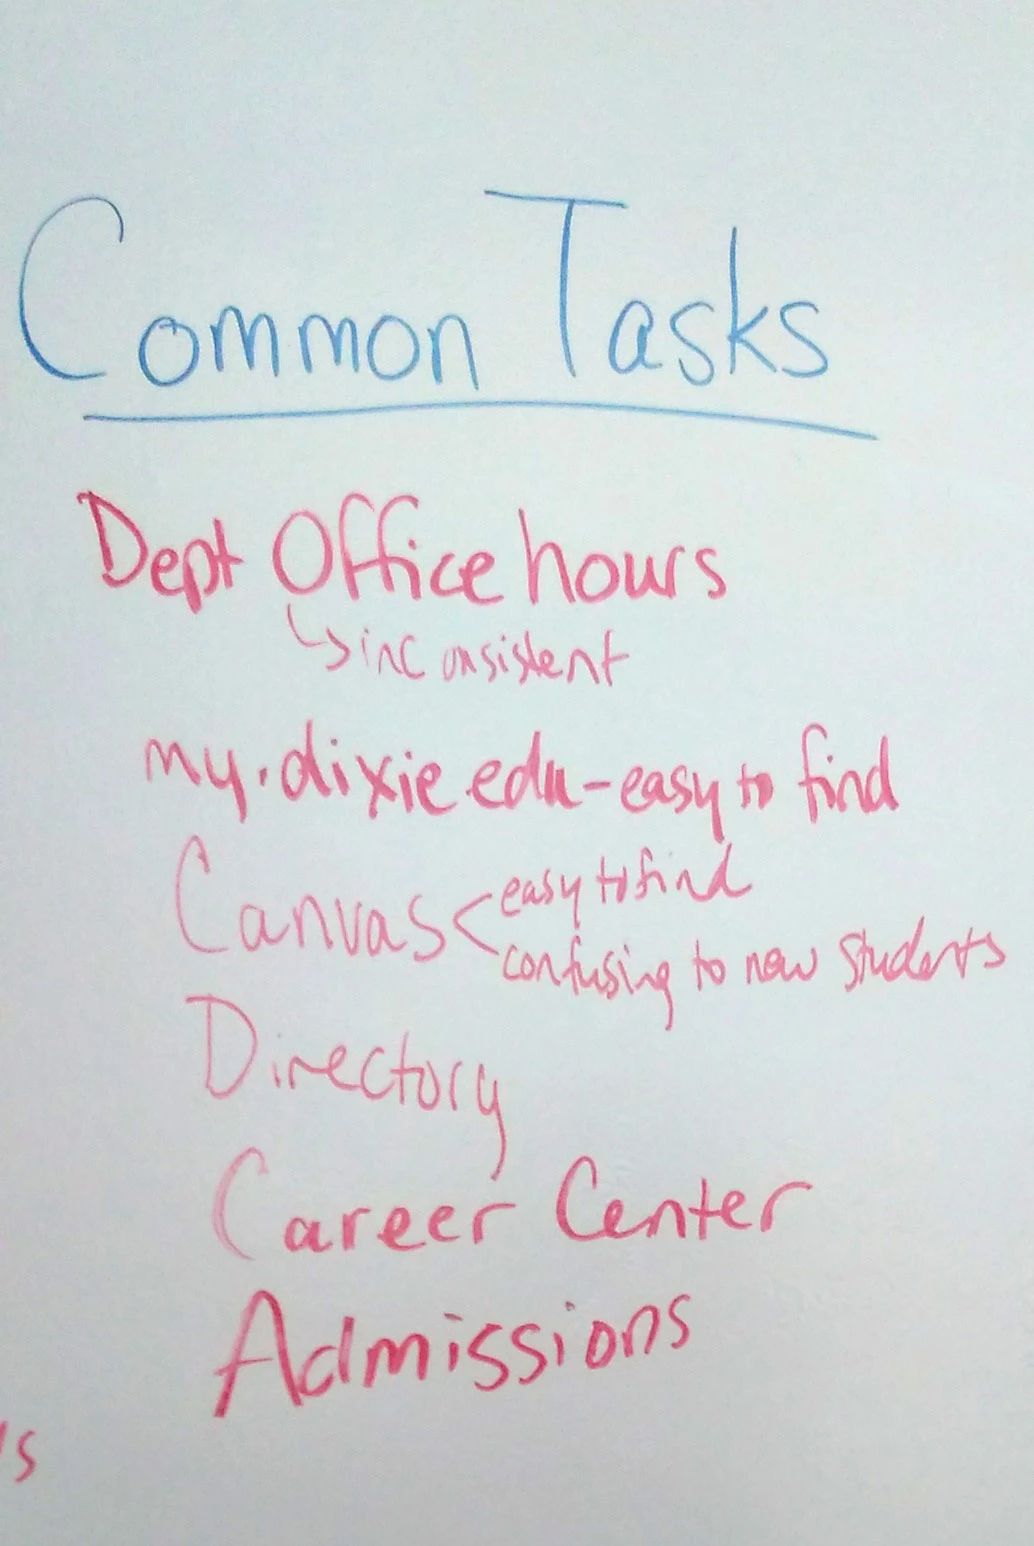 Common Tasks
Dept Office hours
↳ inconsistent
my.dixie edu - easy to find
Canvas < easy to find
confusing to new students
Directory
Career Center
Admissions
's